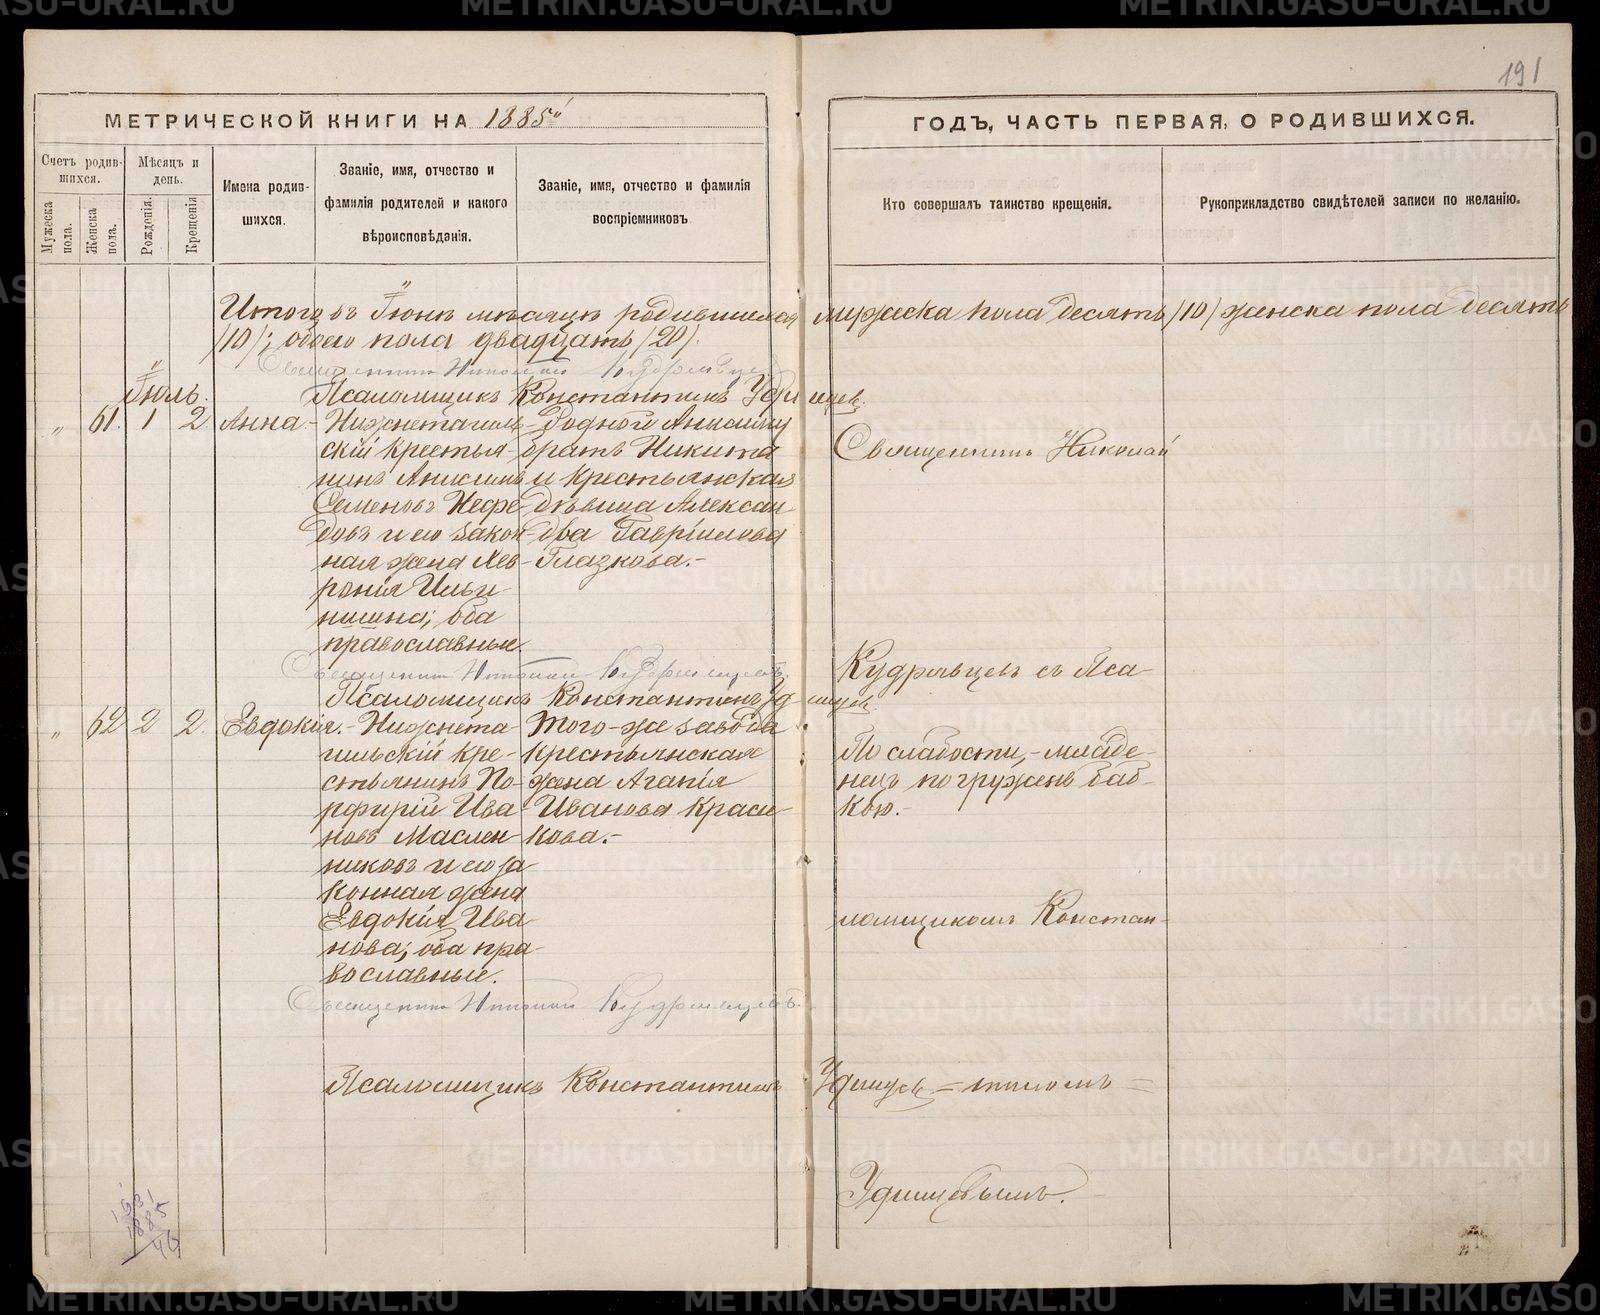 191
МЕТРИЧЕСКОЙ КНИГИ НА 1885й
ГОДЪ, ЧАСТЬ ПЕРВАЯ, О РОДИВШИХСЯ.
Счетъ родив-
шихся.
Мужеска пола.
Женска пола.
Мѣсяцъ и день.
Рожденія.
Крещенія
Имена родив-
шихся.
Званіе, имя, отчество и
фамилія родителей и какого
вѣроисповѣданія.
Званіе, имя, отчество и фамилія
воспріемниковъ
Кто совершалъ таинство крещенія.
Рукоприкладство свидѣтелей записи по желанію.
Итого въ Іюнѣ мѣсяцѣ родившихся мужеска пола десять /10/ женска пола десять
/10/; обоего пола двадцать /20/.
Священникъ Николай Кудрявцевъ
Іюль.
Псаломщикъ Константинъ Удинцев.
„ 61. 1 2 Анна.-
Нижнетагиль-
скій крестья-
нинъ Анисимъ
Семеновъ Нефе-
довъ и его закон-
ная жена Хев-
ронія Ильи-
нишна; оба
православные.
Родной Анисиму
братъ Никита
и крестьянская
дѣвица Алексан-
дра Гавріилова
Глазкова.-
Священникъ Николай
Священникъ Николай Кудрявцевъ.
Псаломщикъ Константинъ Удинцев.
Кудрявцевъ съ Пса-
„ 62 2 2. Евдокія.-
Нижнета-
гильскій кре-
стьянинъ По-
рфирій Ива-
новъ Маслен-
никовъ и его за-
конная жена
Евдокія Ива-
нова; оба пра-
вославные.
Того-же завода
крестьянская
жена Агапія
Иванова Краси-
кова.-
По слабости, младе-
нецъ погруженъ баб-
кою.-
ломщикомъ Констан-
Священникъ Николай Кудрявцевъ.
Псаломщикъ Константинъ Удинцев = тиномъ =
Удинцевымъ.
1885
46
METRIKI.GASO-URAL.RU